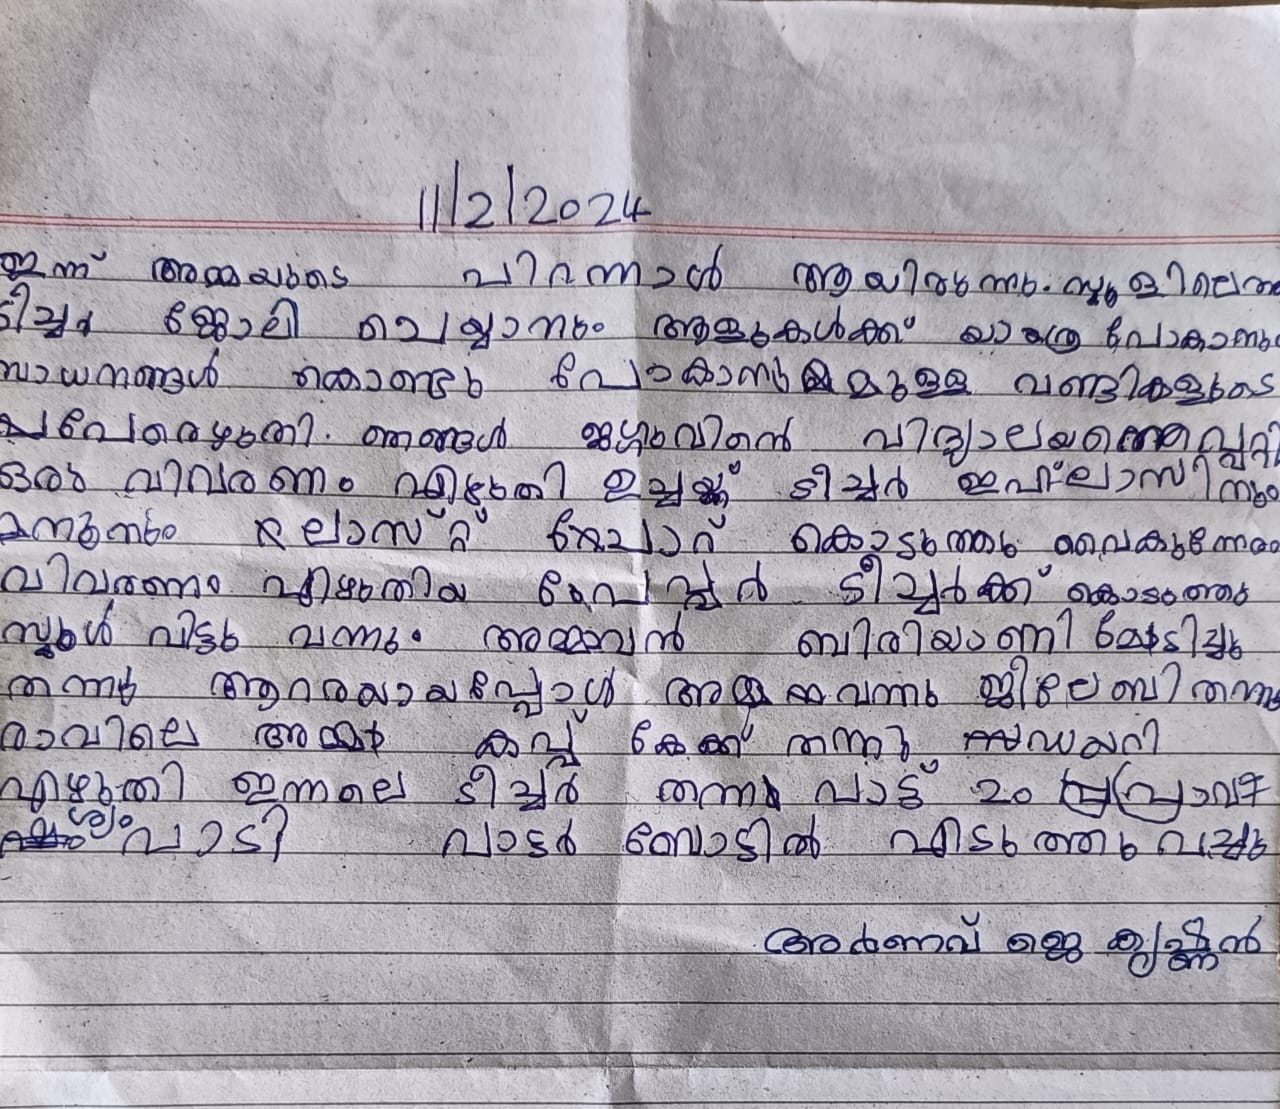 11/2/2024
ഇന്ന് അമ്മയുടെ പിറന്നാൾ ആയിരുന്നു. സ്കൂളിലെത്ത
ടീച്ചർ ജോലി ചെയ്യാനും ആളുകൾക്ക് യാത്ര പോകാനും
സാധനങ്ങൾ കൊണ്ടു പോകാനുമുള്ള വണ്ടികളുടെ
പേരെഴുതി. ഞങ്ങൾ ജഗ്ഗുവിൻെ വിദ്യാലയത്തെപ്പറ്റി
ഒരു വിവരണം എഴുതി ഉച്ചയ്ക്ക് ടീച്ചർ ഇഫ്ലാസിനും
ലാസ്റ്റ് ചോറ് കൊടുത്തു വൈകുന്നേരം
വിവരണം എഴുതിയ പേപ്പർ ടീച്ചർക്ക് കൊടുത്തു
സ്കൂൾ വിട്ടു വന്നു. അമ്മാവൻ ബിരിയാണി മേടിച്ചു
തന്നു ആറരയായപ്പോൾ അമ്മ വന്നു ജിലേബി തന്നു
രാവിലെ അമ്മ കപ്പ് കേക്ക് തന്നു ഡയറി
എഴുതി ഇന്നലെ ടീച്ചർ തന്ന പാട്ട് 20 പ്രാവ
ശ്യം പാടി വാട്ടർ ബോട്ടിൽ എടുത്തു വച്ചു
അർണവ് ജെ കൃഷ്ണൻ